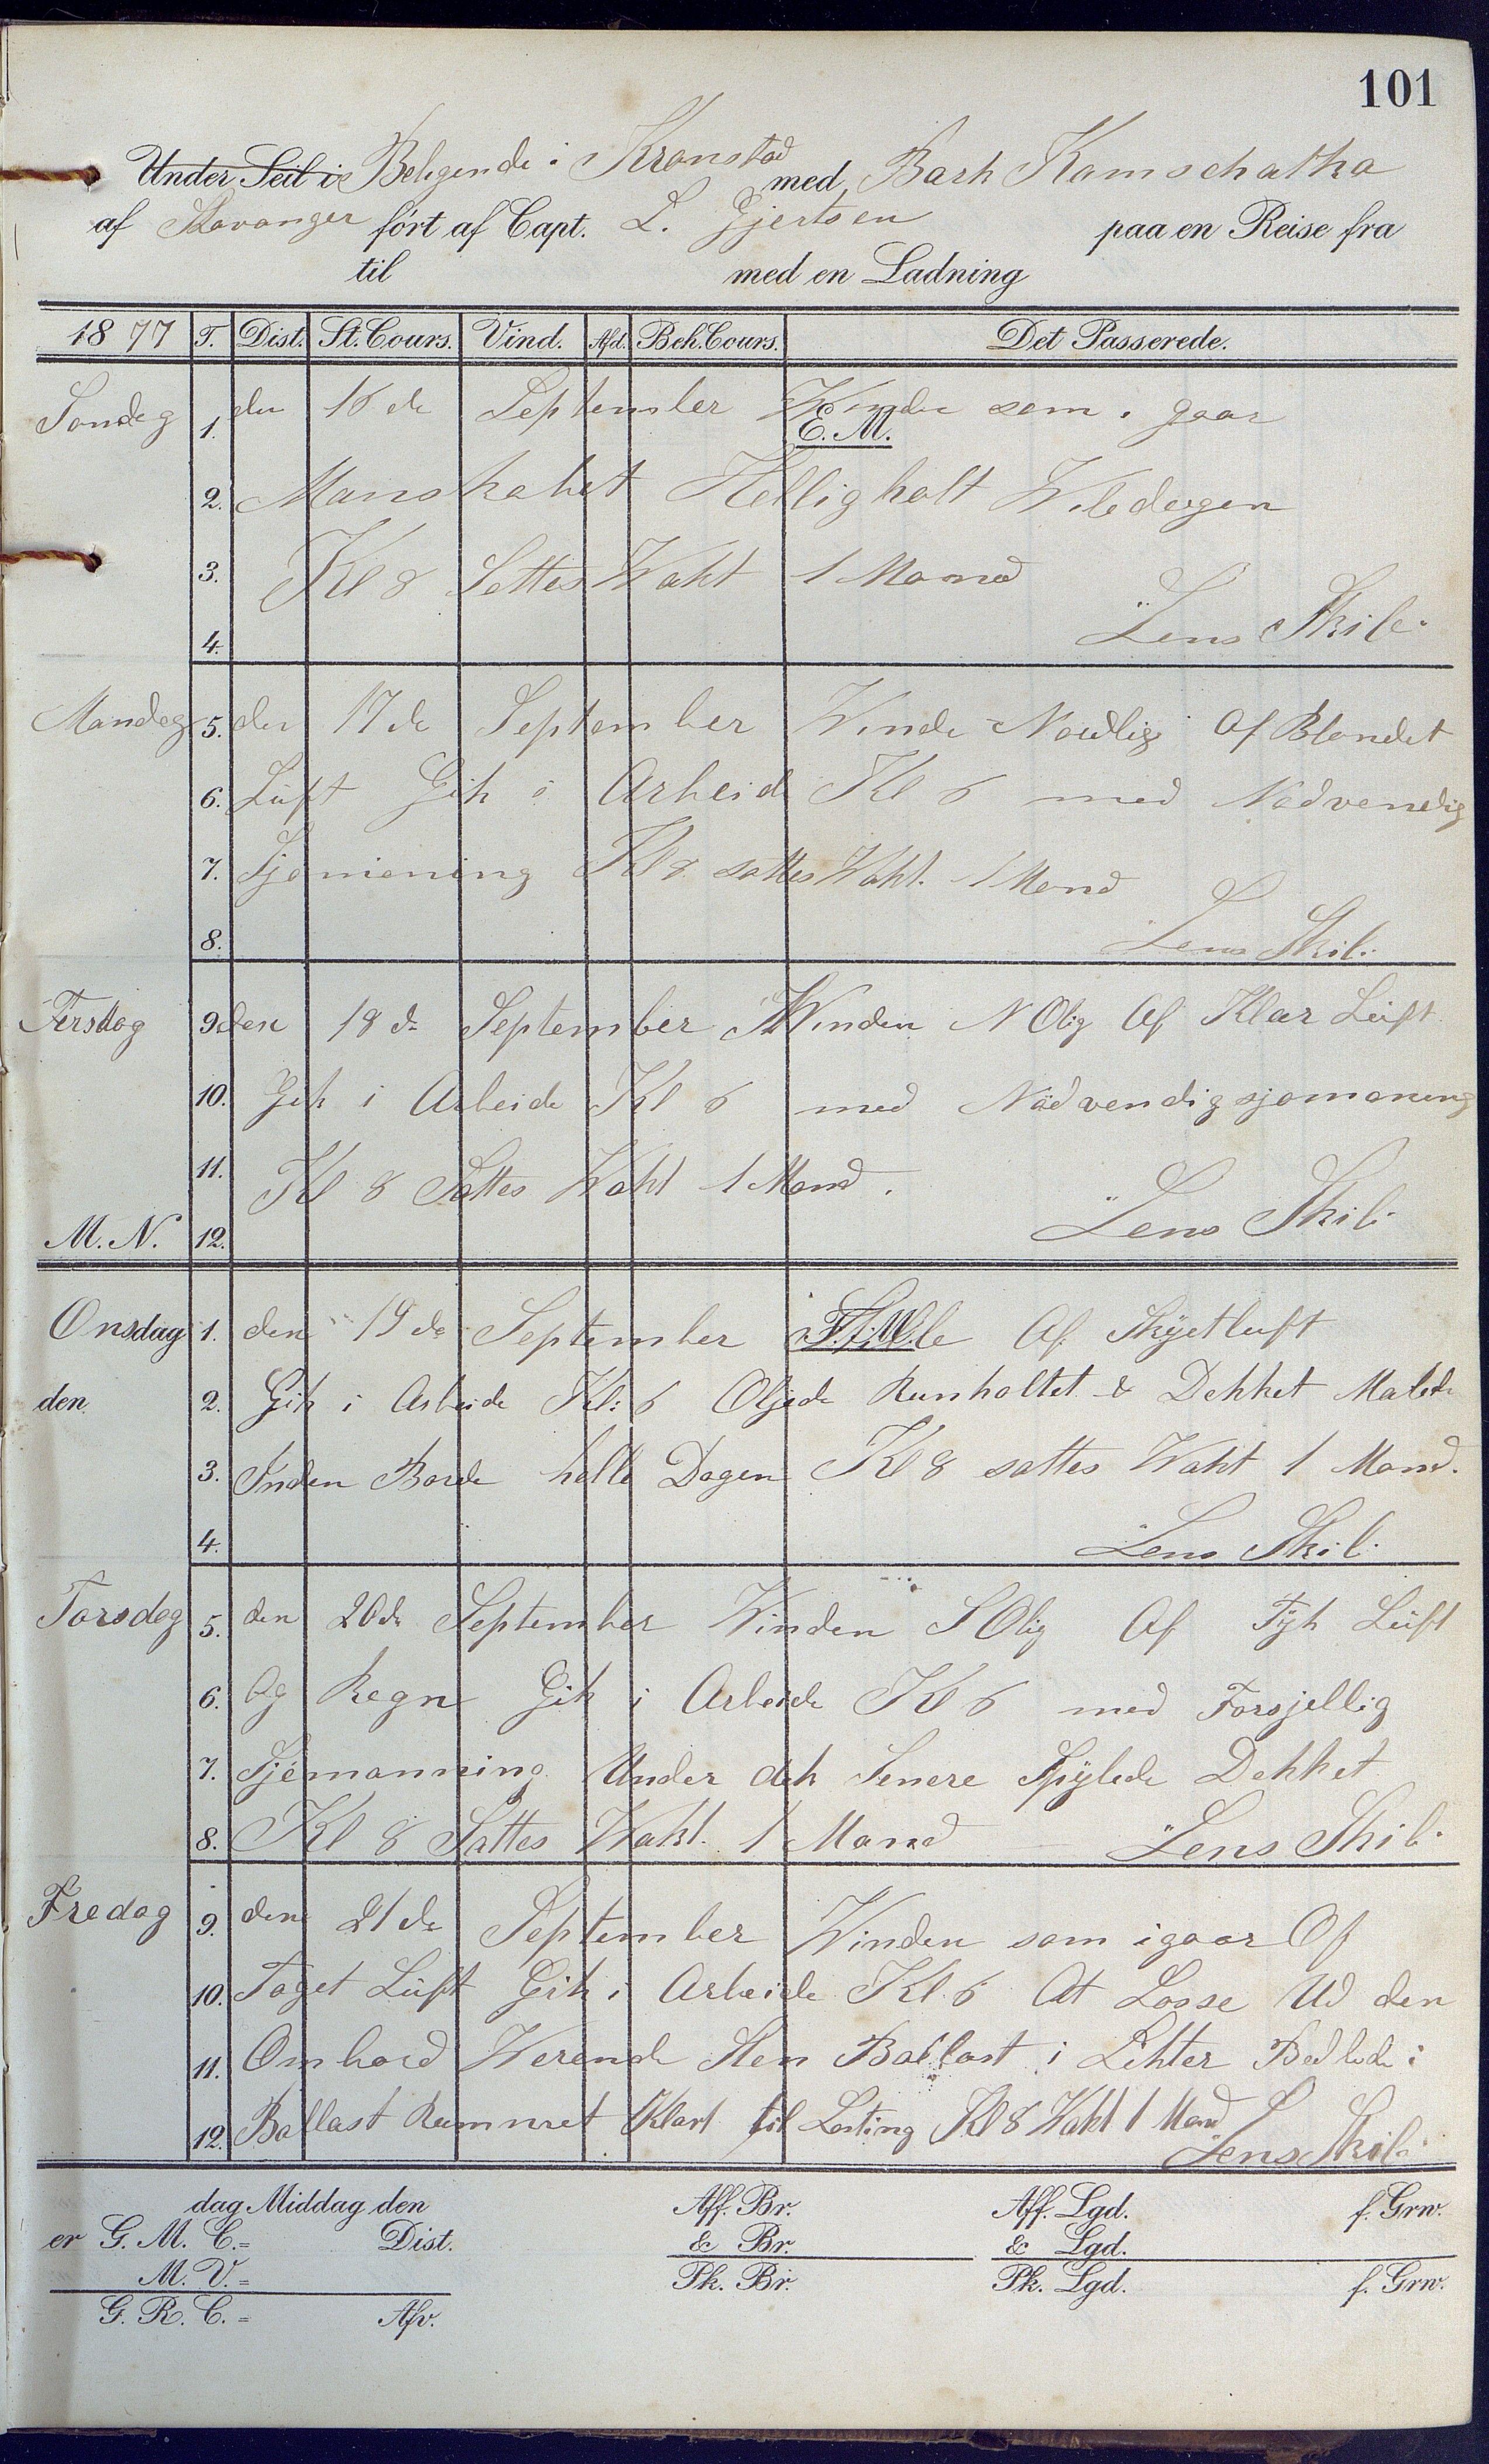 101
Under Seil i Beligende i Kronstad med Bark Kamschatka
af Stavanger ført af Capt. L. Gjertsen paa en Reise fra
til med en Ladning
1877 T. Dist. St. Cours. Vind. Afd. Beh. Cours. Det Passerede.
Sondag 1. den 16 de September Winden som i gaar
E. M.
2. Manskabet Helligholt Wiledagen
3. Kl 8 Settes Wakt 1 Mand
4. Lens Skib.
Mandag 5. den 17 de September Winde Nordlig Af Blandet
6. Lüft Gik i Arbeide Kl 6 med Nødvendig
7. Sjømaning Kl 8 sattes Wakt. 1 Mand
8. Lens Skib.
Tersdag 9. den 18 de September Winden N Olig Af Klar Lüft
10. Gik i Arbeide Kl 6 med Nødvendig sjømaning
11. Kl 8 Sattes Wakt 1 Mand.
M. N. 12. Lens Skib.
Onsdag 1. den 19 de September Stille Af Skÿetluft
F. M.
den 2. Gik i Arbeide Kl: 6 Oljede Runholtet & Dekket Malede
3. Inden Borde helle Dagen Kl 8 sattes Wakt 1 Mand.
4. Lens Skib.
Torsdag 5. den 20 de September Winden S Olig Af Tÿk Lüft
6. Og Regn Gik i Arbeide Kl 6 med Forsjellig
7. Sjømanning Under dek Senere Spÿlede Dekket
8. Kl 8 Sattes Wakt. 1 Mand Lens Skib.
Fredag 9. den 21 de September Winden som igaar Of
10. Taget Lüft Gik i Arbeide Kl. 6 At Losse Ud den
11. Ombord Werende Sten Ballast i Lekter i
12. Ballast Rummet Klart til Lasting Kl 8 Wakt 1 Mand Lens Skib.
dag Middag den Aff. Br. Aff. Lgd. f. Grw.
er G. M. C. = Dist. & Br. & Lgd.
M. V. = Pk. Br. Pk. Lgd. f. Grw.
G. R. C. = Afv.